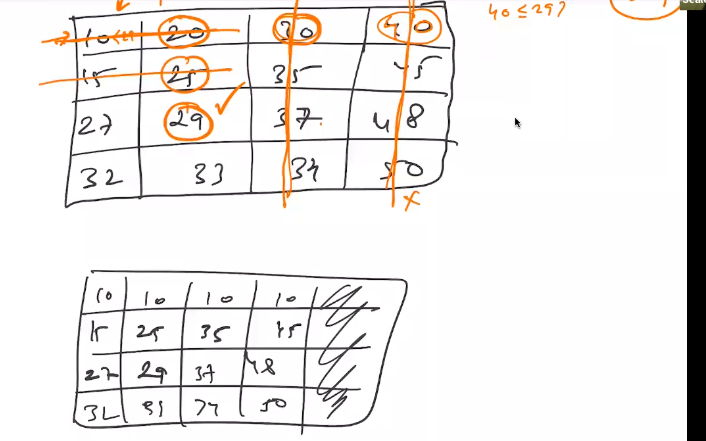 40 ≤ 29?
10 20 30 40
15 25 35 45
27 29 37 48
32 33 34 50
10 10 10 10
15 25 35 45
27 29 37 48
32 33 34 50